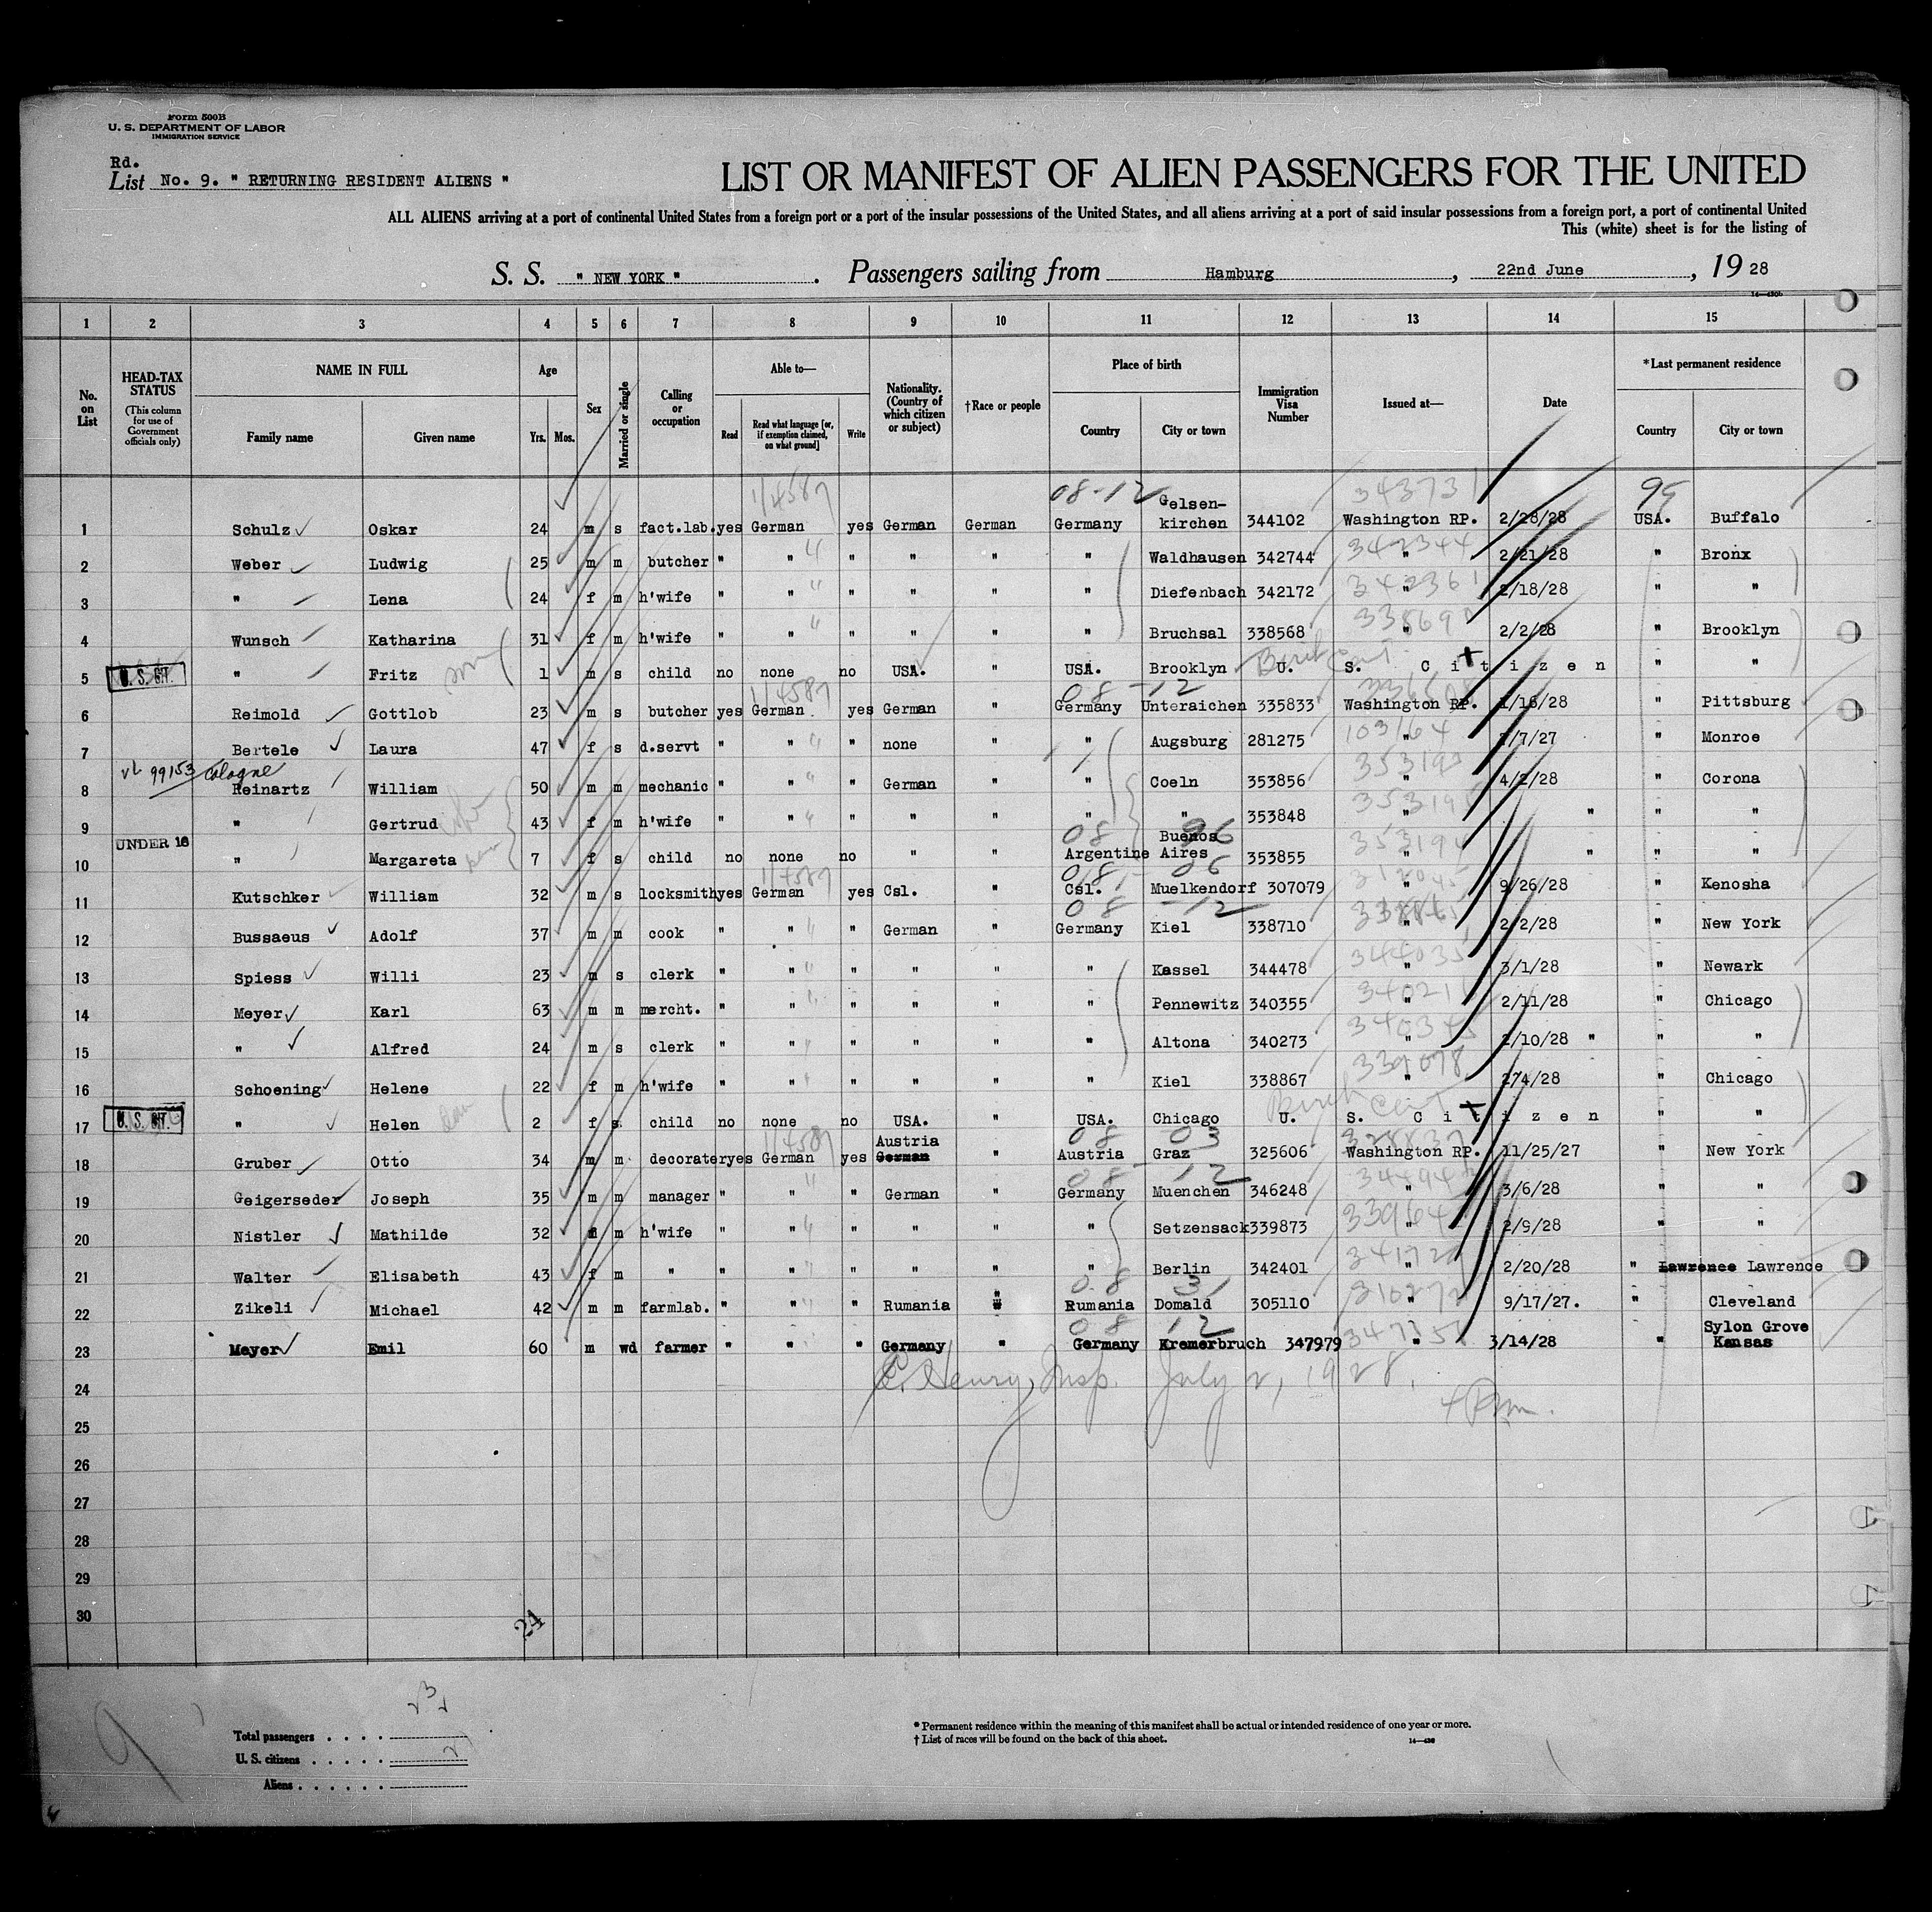 Form 500B
U. S. DEPARTMENT OF LABOR
IMMIGRATION SERVICE
Rd.
List No. 9. " RETURNING RESIDENT ALIENS "
LIST OR MANIFEST OF ALIEN PASSENGERS FOR THE UNITED
ALL ALIENS arriving at a port of continental United States from a foreign port or a port of the insular possessions of the United States, and all aliens arriving at a port of said insular possessions from a foreign port, a port of continental United
This (white) sheet is for the listing of
S. S. " NEW YORK ". Passengers sailing from Hamburg, 22nd June, 19 28
1 2 3 4 5 6 7 8 9 10 11 12 13 14 15
No. on List
HEAD-TAX STATUS (This column for use of Government officials only)
NAME IN FULL Family name Given name
Age Yrs. Mos.
Sex
Married or single
Calling or occupation
Able to— Read Read what language [or, if exemption claimed, on what ground] Write
Nationality. (Country of which citizen or subject)
†Race or people
Place of birth Country City or town
Immigration Visa Number
Issued at—
Date
*Last permanent residence Country City or town
1/4587 08-12 343731 95
1 Schulz Oskar 24 m s fact.lab. yes German yes German German Germany Gelsen-kirchen 344102 Washington RP. 2/28/28 USA. Buffalo
2 Weber Ludwig 25 m m butcher " " " " " " Waldhausen 342744 " 2/21/28 " Bronx
3 " Lena 24 f m h'wife " " " " " " Diefenbach 342172 " 2/18/28 " "
4 Wunsch Katharina 31 f m h'wife " " " " " " Bruchsal 338568 " 2/2/28 " Brooklyn
5 U. S. CIT. " Fritz son 1 m s child no none no USA. " USA. Brooklyn U. S. Citizen " "
6 Reimold Gottlob 23 m s butcher yes German yes German " Germany Unteraichen 335833 Washington RP. 1/16/28 " Pittsburg
7 Bertele Laura 47 f s d.servt " " " none " " Augsburg 281275 " /7/27 " Monroe
99153 Cologne
8 Reinartz William 50 m m mechanic " " " German " " Coeln 353856 " 4/2/28 " Corona
9 " Gertrud 43 f m h'wife " " " " " " " 353848 " " " "
10 UNDER 16 " Margareta 7 f s child no none no " " Argentine Buenos Aires 353855 " " " "
11 Kutschker William 32 m s locksmith yes German yes Csl. " Csl. Muelkendorf 307079 " 9/26/28 " Kenosha
12 Bussaeus Adolf 37 m m cook " " " German " Germany Kiel 338710 " 2/2/28 " New York
13 Spiess Willi 23 m s clerk " " " " " " Kassel 344478 " 3/1/28 " Newark
14 Meyer Karl 63 m m mercht. " " " " " " Pennewitz 340355 " 2/11/28 " Chicago
15 " Alfred 24 m s clerk " " " " " " Altona 340273 " 2/10/28 " " "
16 Schoening Helene 22 f m h'wife " " " " " " Kiel 338867 " 2/4/28 " Chicago
17 U. S. CIT. " Helen 2 f s child no none no USA. " USA. Chicago U. S. Citizen " "
18 Gruber Otto 34 m m decorater yes German yes Austria German " Austria Graz 325606 Washington RP. 11/25/27 " New York
19 Geigerseder Joseph 35 m m manager " " " German " Germany Muenchen 346248 " 3/6/28 " "
20 Nistler Mathilde 32 f m h'wife " " " " " " Setzensack 339873 " 2/9/28 " "
21 Walter Elisabeth 43 f m " " " " " " " Berlin 342401 " 2/20/28 " Lawrence Lawrence
22 Zikeli Michael 42 m m farmlab. " " " Rumania " Rumania Domald 305110 " 9/17/27. " Cleveland
23 Meyer Emil 60 m wd farmer " " " Germany " Germany Kremerbruch 347979 " 3/14/28 " Sylon Grove Kansas
24 C. Henry, Insp. July 2, 1928.
25
26
27
28
29
30
24
9
Total passengers . . . .
U. S. citizens . . . . . 2
Aliens . . . . . .
* Permanent residence within the meaning of this manifest shall be actual or intended residence of one year or more.
† List of races will be found on the back of this sheet.